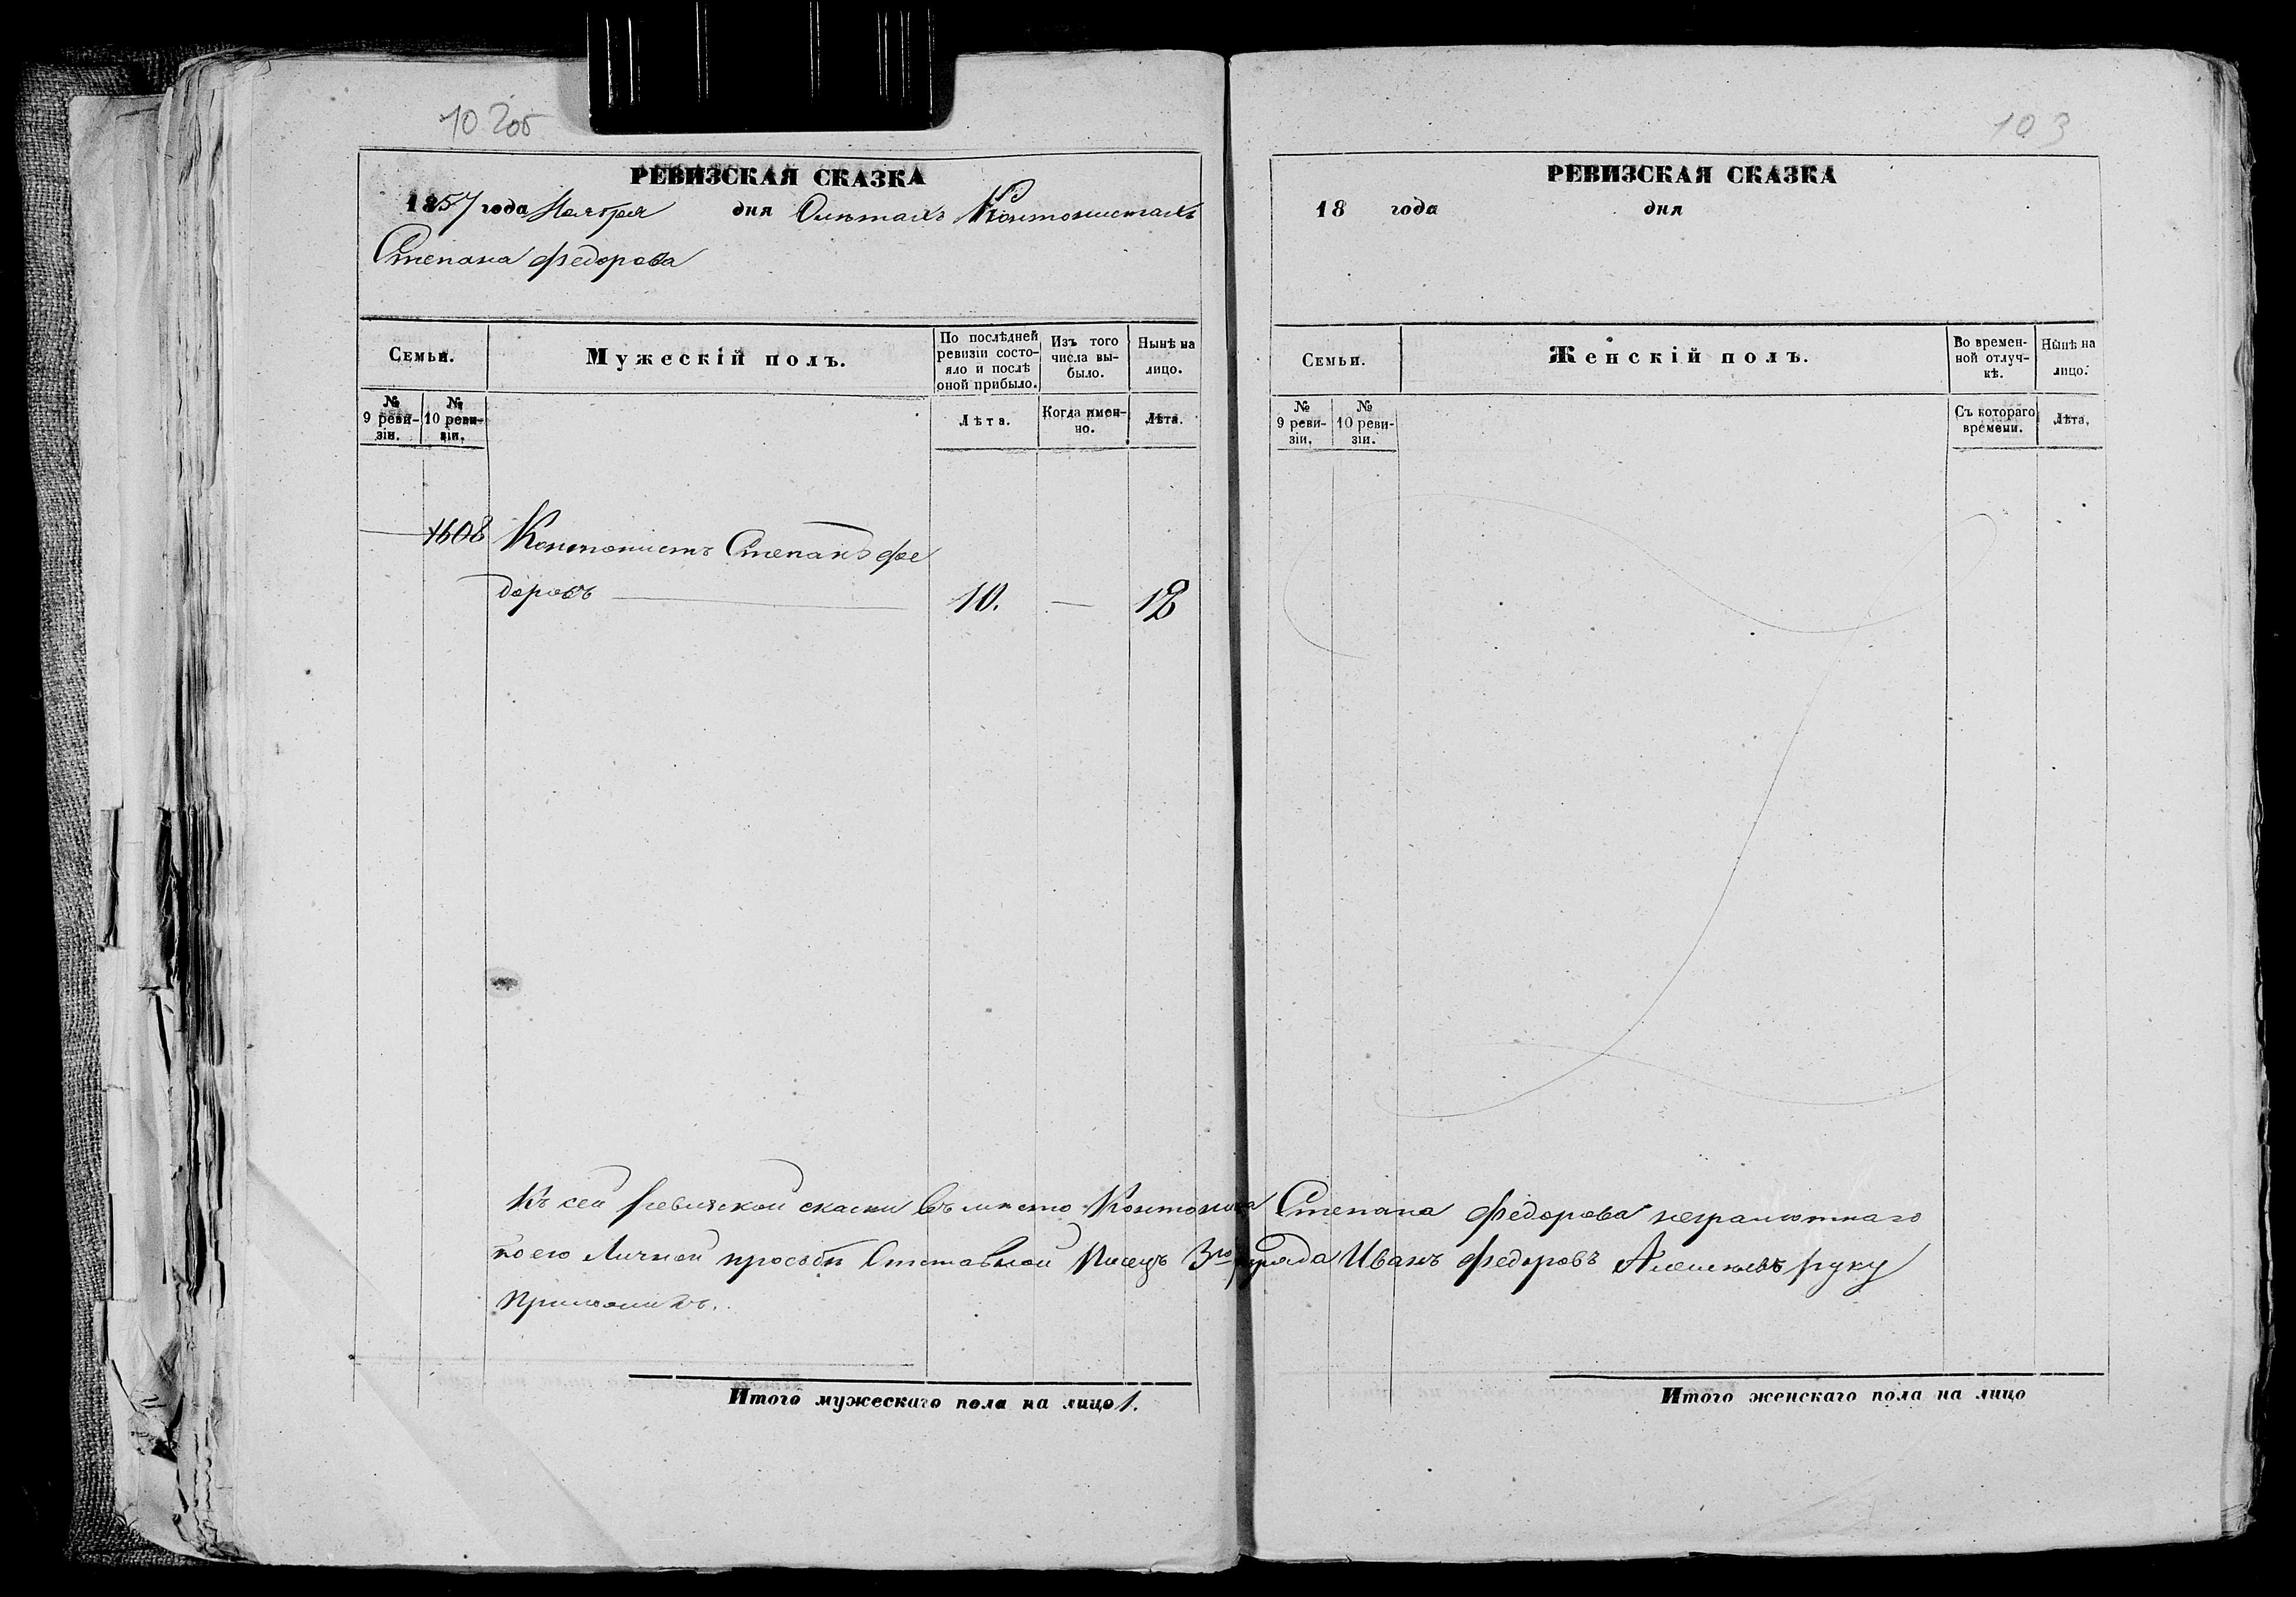 102об
РЕВИЗСКАЯ СКАЗКА
1857 года Ноября дня Кантонистахъ
Степана Федорова
Семьи.
Мужескій полъ.
По послѣдней ревизіи состо-
яло и послѣ оной прибыло.
Изъ того числа вы-
было.
Нынѣ на лицо.
№ 9 реви-
зіи.
№ 10 реви-
зіи.
Лѣта.
Когда имен-
но.
Лѣта.
1608 Кантонистъ Степанъ Фе
доровъ 10. — 18
Къ сей ревизской сказки въ место Степана Федорова неграмотнаго
по его личной прозбы Отставной Писецъ 3го розряда Иванъ Федоровъ руку
приложилъ.
Итого мужескаго пола на лицо 1.
103
РЕВИЗСКАЯ СКАЗКА
18 года дня
Семьи.
Женскій полъ.
Во времен-
ной отлуч-
кѣ.
Нынѣ на лицо.
№ 9 реви-
зіи.
№ 10 реви-
зіи.
Съ котораго времени.
Лѣта.
Итого женскаго пола на лицо